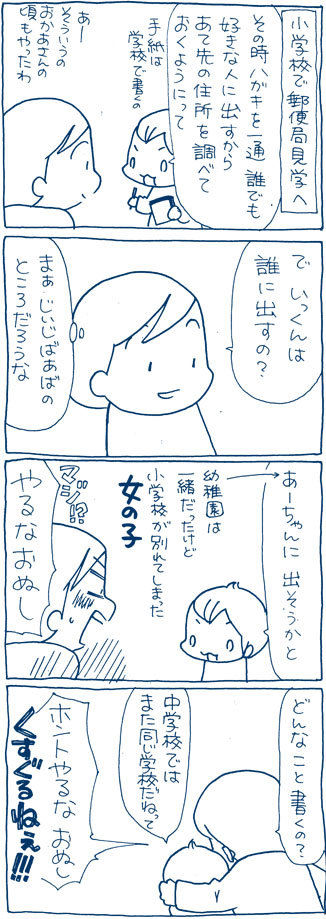 小学校で郵便局見学へ
その時ハガキを一通 誰でも
好きな人に出すから
あて先の住所を調べて
おくようにって
手紙は
学校で書くの
あー
そういうの
おかあさんの
頃もやったわ
で いっくんは
誰に出すの?
まぁ じいじばあばの
ところだろうな
あーちゃんに 出そうかと
幼稚園は
一緒だったけど
小学校が別れてしまった
女の子
マジ!?
やるなおぬし
どんなこと書くの?
中学校では
また同じ学校だねって
ホントやるな おぬし
くすぐるねぇ!!!